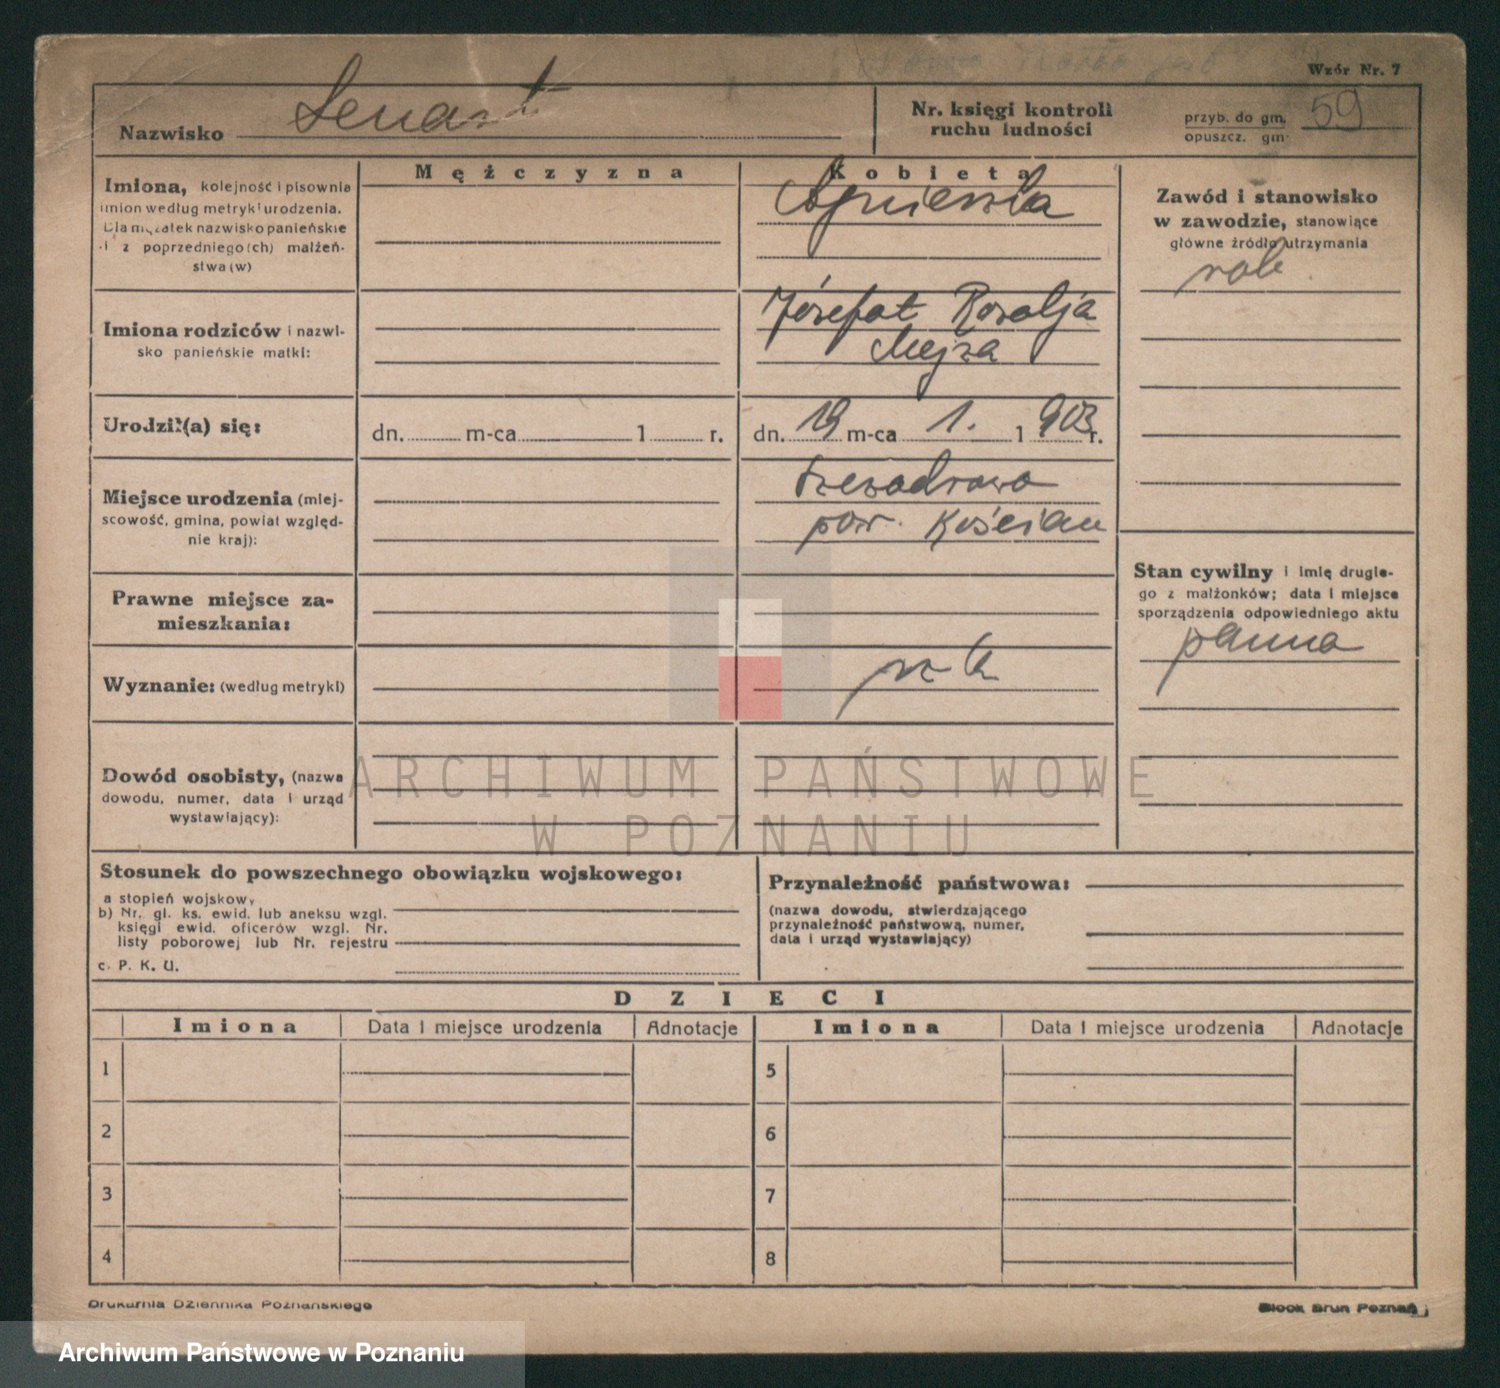 Wzór Nr. 7
Nazwisko
Nr. księgi kontroli
ruchu ludności
przyb. do gm. 59
opuszcz. gm.
Mężczyzna
Kobieta
Imiona, kolejność i pisownia
imion według metryki urodzenia.
Dla mężatek nazwisko panieńskie
i z poprzedniego(ch) małżeń-
stwa(w)
Agnieszka
Zawód i stanowisko
w zawodzie, stanowiące
główne źródło utrzymania
rob.
Imiona rodziców i nazwi-
sko panieńskie matki:
Józefat Rozalja
Mejza
Urodził(a) się:
dn. m-ca 1 r.
dn. 19 m-ca 1. 1903 r.
Miejsce urodzenia (miej-
scowość, gmina, powiat względ-
nie kraj):
pow. Kościan
Stan cywilny i imię drugie-
go z małżonków; data i miejsce
sporządzenia odpowiedniego aktu
panna
Prawne miejsce za-
mieszkania:
Wyznanie: (według metryki)
rz k
Dowód osobisty, (nazwa
dowodu, numer, data i urząd
wystawiający):
ARCHIWUM PAŃSTWOWE
W POZNANIU
Stosunek do powszechnego obowiązku wojskowego:
a stopień wojskowy
b) Nr. gl. ks. ewid. lub aneksu wzgl.
księgi ewid. oficerów wzgl. Nr.
listy poborowej lub Nr. rejestru
c. P. K. U.
Przynależność państwowa:
(nazwa dowodu, stwierdzającego
przynależność państwową, numer,
data i urząd wystawiający)
DZIECI
Imiona Data i miejsce urodzenia Adnotacje Imiona Data i miejsce urodzenia Adnotacje
1 5
2 6
3 7
4 8
Drukarnia Dziennika Poznańskiego
Block Brun Poznań
Archiwum Państwowe w Poznaniu